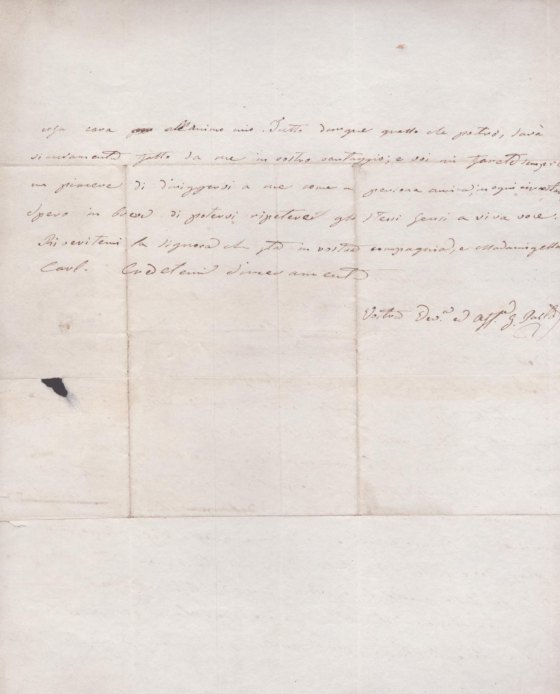 cosa cara all'animo mio. Tutto dunque quello che potrò, sarà
sicuramente fatto da me in vostro vantaggio; e voi mi farete sempre
un piacere di diriggervi a me come a persona amica, in ogni
Spero in breve di potervi ripetere gli stessi sensi a viva voce
Riveritemi la signora che sta in vostra compagnia, e Madamigella
Carl. Credetemi sinceramente
Vostro Dev.o ed Aff.o G.